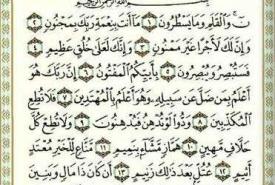 بسم الله الرحمن الرحيم
نٓ وَالْقَلَمِ وَمَا يَسْطُرُونَ ١ مَا أَنتَ بِنِعْمَةِ رَبِّكَ بِمَجْنُونٍ ٢
وَإِنَّ لَكَ لَأَجْرًا غَيْرَ مَمْنُونٍ ٣ وَإِنَّكَ لَعَلَىٰ خُلُقٍ عَظِيمٍ ٤
فَسَتُبْصِرُ وَيُبْصِرُونَ ٥ بِأَييِّكُمُ الْمَفْتُونُ ٦ إِنَّ رَبَّكَ هُوَ
أَعْلَمُ بِمَن ضَلَّ عَن سَبِيلِهِ وَهُوَ أَعْلَمُ بِالْمُهْتَدِينَ ٧ فَلَا تُطِعِ
الْمُكَذِّبِينَ ٨ وَدُّوا لَوْ تُدْهِنُ فَيُدْهِنُونَ ٩ وَلَا تُطِعْ كُلَّ
حَلَّافٍ مَّهِينٍ ١٠ هَمَّازٍ مَّشَّاءٍ بِنَمِيمٍ ١١ مَّنَّاعٍ لِّلْخَيْرِ مُعْتَدٍ
أَثِيمٍ ١٢ عُتُلٍّ بَعْدَ ذَٰلِكَ زَنِيمٍ ١٣ أَن كَانَ ذَا مَالٍ وَبَنِينَ